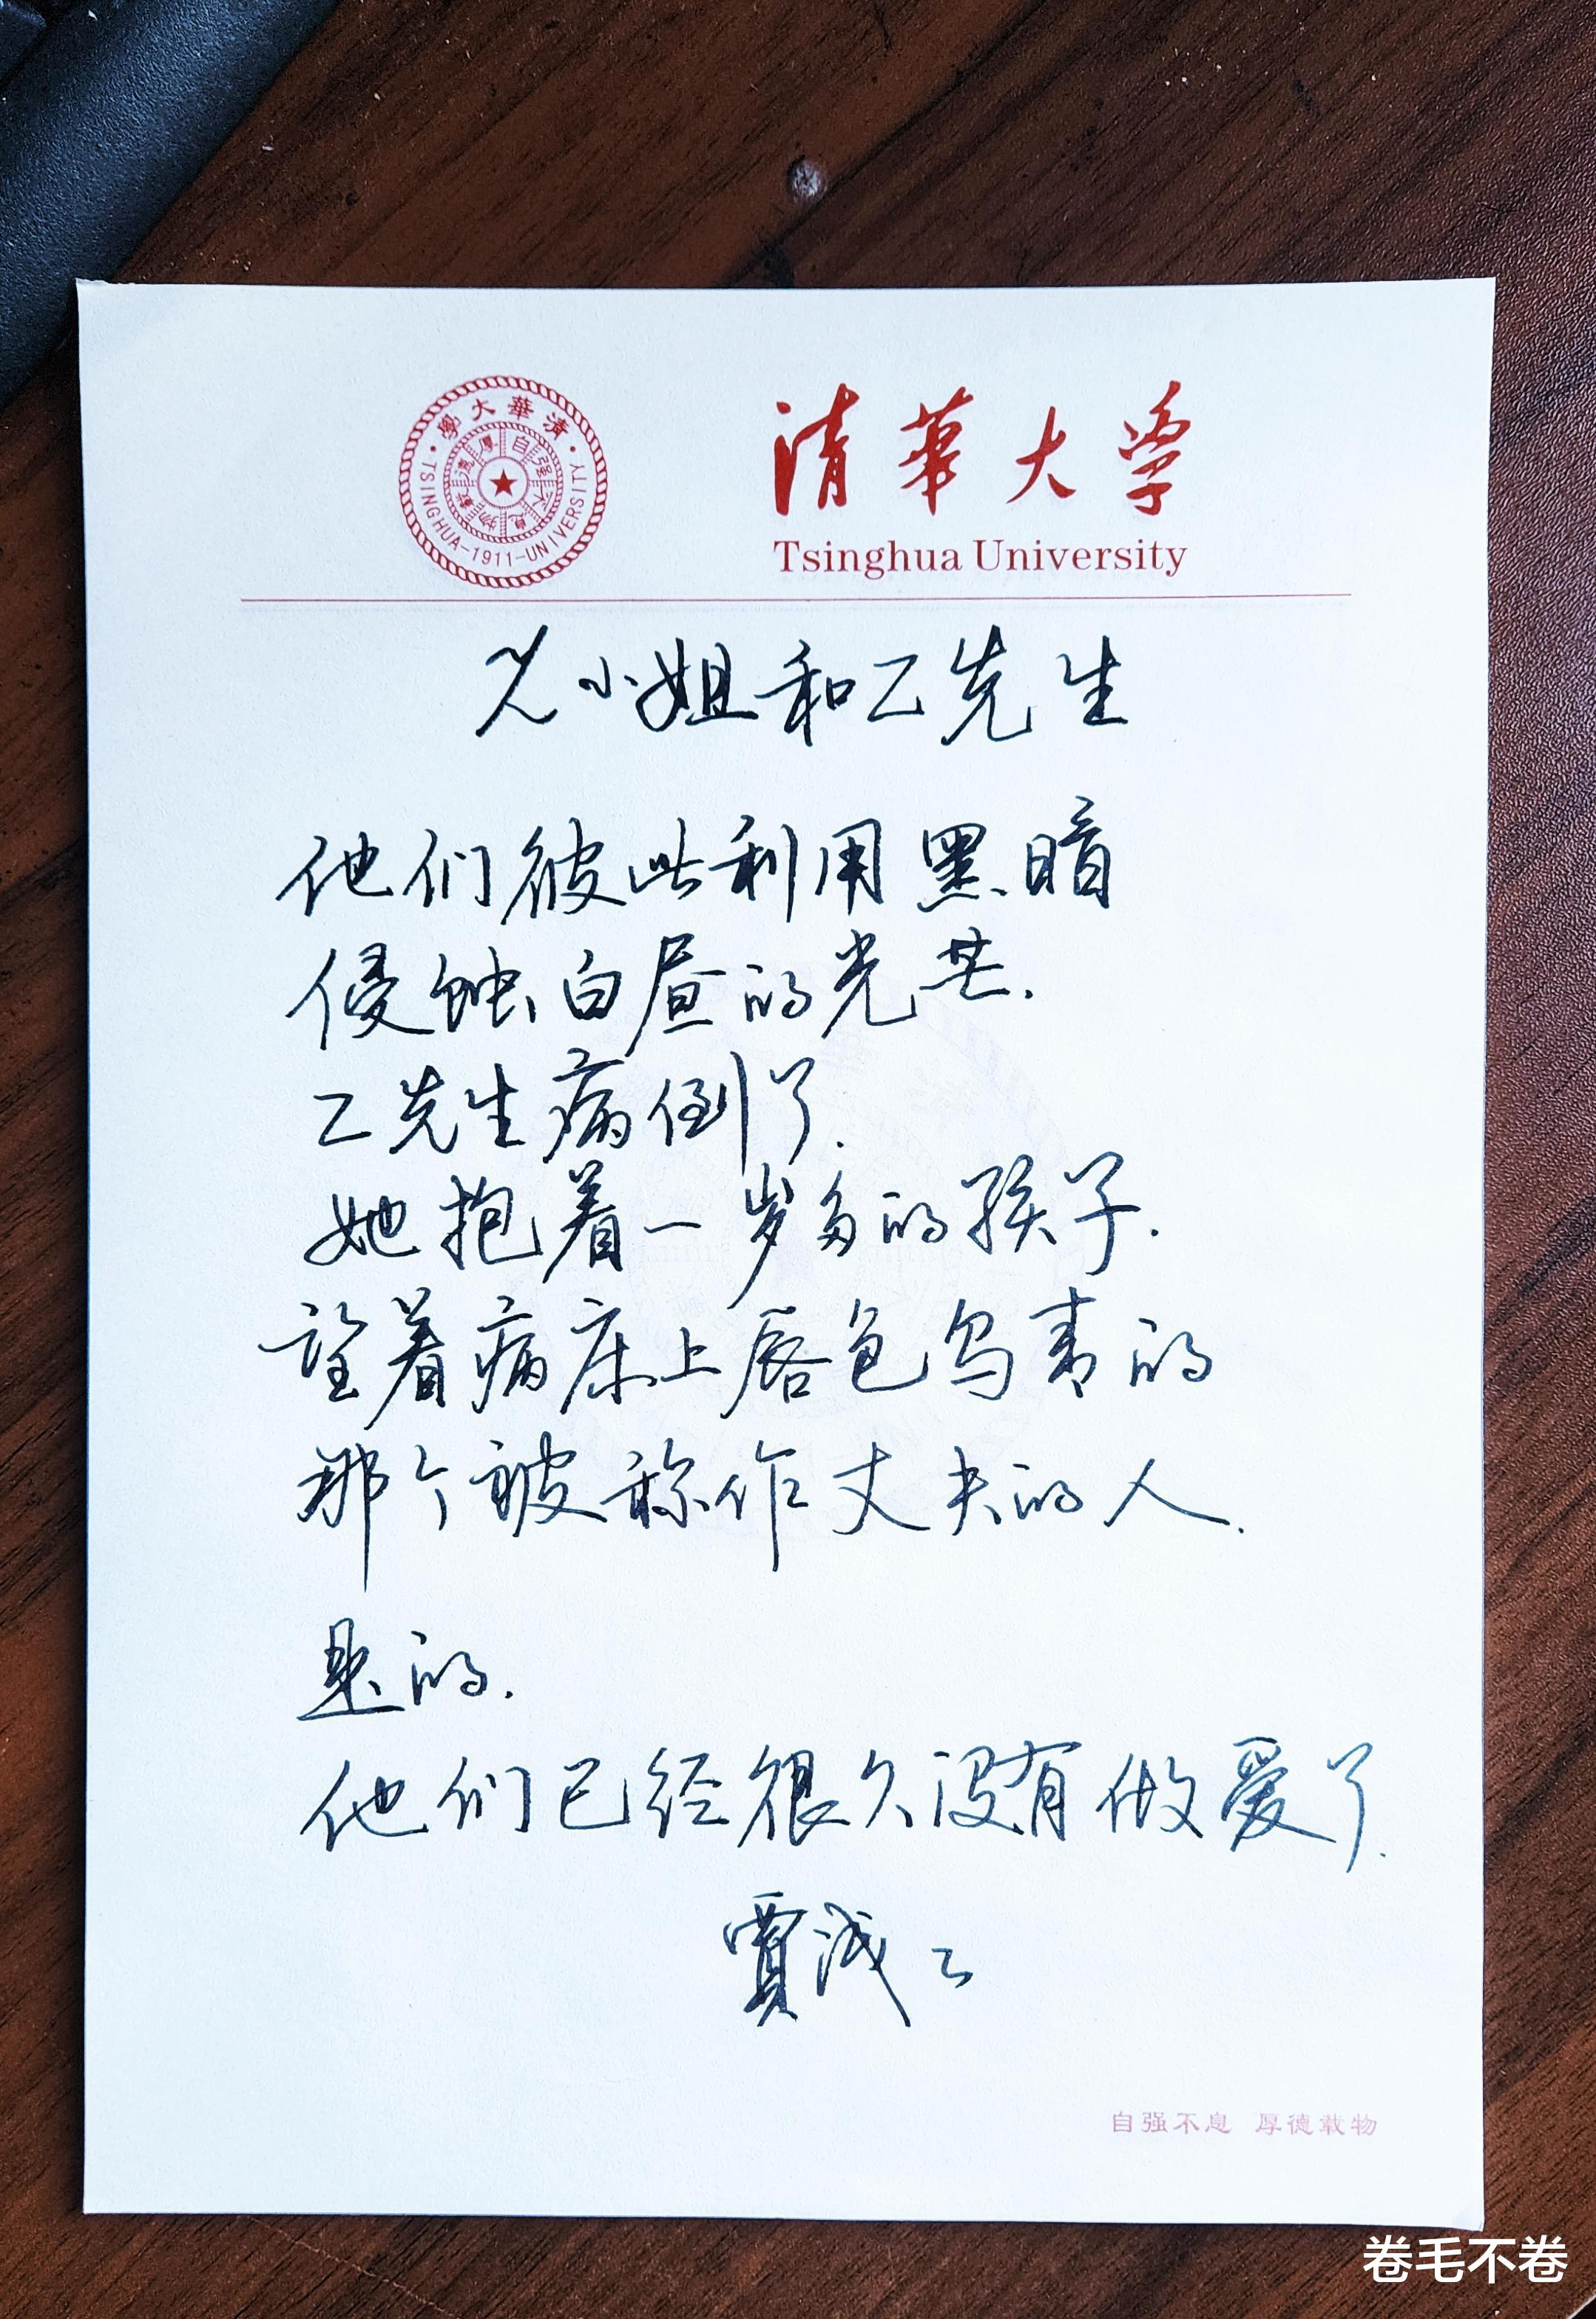 清華大學
自强不息厚德載物
TSINGHUA-1911-UNIVERSITY
清華大学
Tsinghua University
小姐和Z先生
他们彼此利用黑暗
侵蚀白昼的光芒.
Z先生病倒了.
她抱着一岁多的孩子.
望着病床上唇色乌青的
那个被称作丈夫的人.
是的.
他们已经很久没有做爱了.
贾浅々
自强不息 厚德载物
卷毛不卷